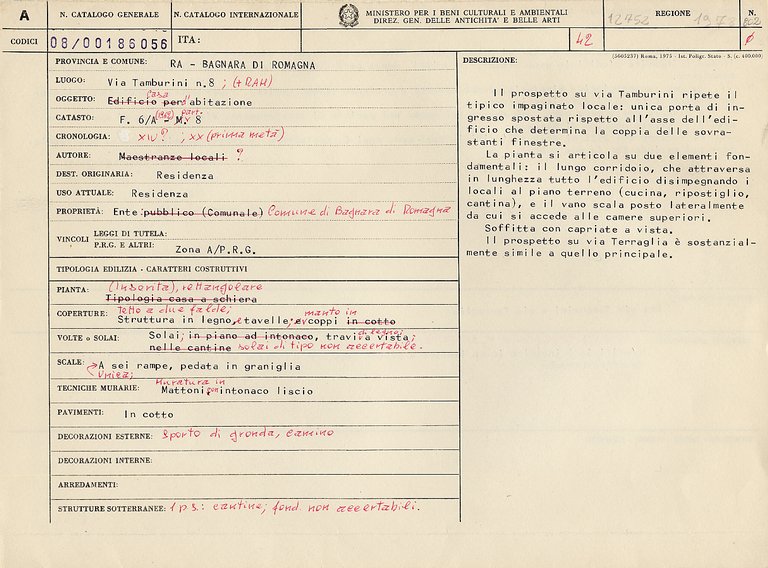 A
N. CATALOGO GENERALE
N. CATALOGO INTERNAZIONALE
MINISTERO PER I BENI CULTURALI E AMBIENTALI
DIREZ. GEN. DELLE ANTICHITA' E BELLE ARTI
REGIONE
N.
12752
CODICI
08/00186056
ITA:
42
(5605237) Roma, 1975 - Ist. Poligr. Stato - S. (c. 400.000)
PROVINCIA E COMUNE: RA - BAGNARA DI ROMAGNA
LUOGO: Via Tamburini n.8 ; (+RAH)
OGGETTO: Edificio per abitazione
casa
CATASTO: F. 6/A - M. 8
(1969) part.
CRONOLOGIA: XIV? ; XX (prima metà)
AUTORE: Maestranze locali ?
DEST. ORIGINARIA: Residenza
USO ATTUALE: Residenza
PROPRIETÀ: Ente pubblico (Comunale) Comune di Bagnara di Romagna
VINCOLI
LEGGI DI TUTELA:
P.R.G. E ALTRI: Zona A/P.R.G.
TIPOLOGIA EDILIZIA - CARATTERI COSTRUTTIVI
PIANTA: (Inserita), rettangolare
Tipologia casa a schiera
COPERTURE: Tetto a due falde;
manto in
Struttura in legno, e tavelle; coppi in cotto
VOLTE o SOLAI: Solai; in piano ad intonaco, travi a vista;
di legno;
nelle cantine solai di tipo non accertabile.
SCALE: A sei rampe, pedata in graniglia
Unica;
TECNICHE MURARIE: Muratura in
Mattoni, con intonaco liscio
PAVIMENTI: In cotto
DECORAZIONI ESTERNE: Sporto di gronda, camino
DECORAZIONI INTERNE:
ARREDAMENTI:
STRUTTURE SOTTERRANEE: 1 p.s.: cantine; fond. non accertabili.
DESCRIZIONE:
Il prospetto su via Tamburini ripete il
tipico impaginato locale: unica porta di in-
gresso spostata rispetto all'asse dell'edi-
ficio che determina la coppia delle sovra-
stanti finestre.
La pianta si articola su due elementi fon-
damentali: il lungo corridoio, che attraversa
in lunghezza tutto l'edificio disimpegnando i
locali al piano terreno (cucina, ripostiglio,
cantina), e il vano scala posto lateralmente
da cui si accede alle camere superiori.
Soffitta con capriate a vista.
Il prospetto su via Terraglia è sostanzial-
mente simile a quello principale.